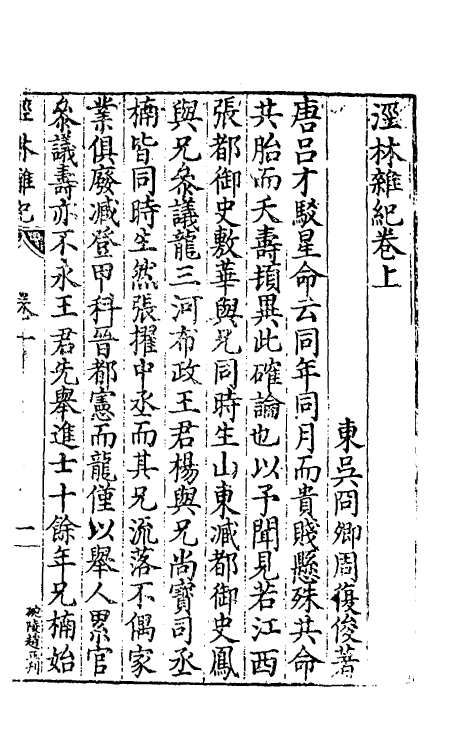 涇林雜紀卷上
東吳冏卿周復俊著
唐呂才駁星命云同年同月而貴賤懸殊共命
共胎而夭壽頓異此確論也以予聞見若江西
張都御史敷華與兄同時生山東臧都御史鳳
與兄叅議龍三河布政王君楊與兄尚寶司丞
楠皆同時生然張擢中丞而其兄流落不偶家
業俱廢臧登甲科晉都憲而龍僅以舉人累官
叅議壽亦不永王君先舉進士十餘年兄楠始
涇林雜紀 卷上 一